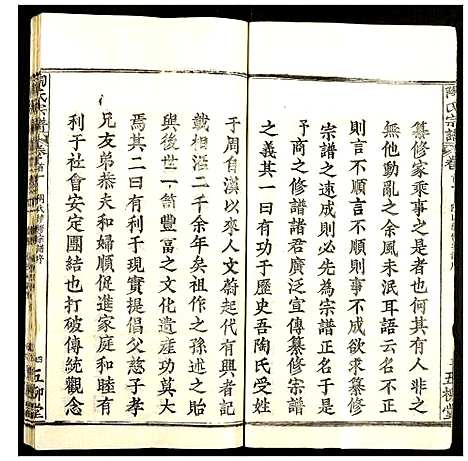 陶氏宗譜
卷首
纂修家乘事之是者也何其有人非之
無他動亂之余風未泯耳語云名不正
則言不順言不順則事不成何以使修
宗譜之速成則必先為宗譜正名可也
予商之修譜諸君廣泛宣傳纂修宗譜
之義其一有功於歷史吾陶氏受姓
五柳堂
于周自漢以來人文蔚起代有興者記
載相沿二千余年矣祖作之孫述之貽
與後世一筆豐富之文化遺產功莫大
焉其二曰有利于現實提倡父慈子孝
兄友弟恭夫和婦順促進家庭和睦有
利于社會安定團結也打破傳統觀念
陶氏宗譜
卷首
四
五柳堂